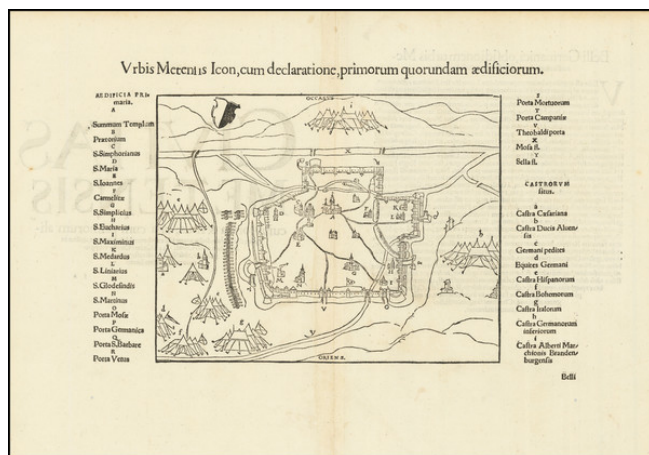 Vrbis Metensis Icon, cum declaratione, primorum quorundam ædificiorum.
ÆDIFICIA PRI-
maria.
A
Summum Templum
B
Prætorium
C
S. Simphorianus
D
S. Maria
E
S. Ioannes
F
Carmelitæ
G
S. Simplicius
H
S. Eucharius
I
S. Maximinus
K
S. Medardus
L
S. Liniarius
M
S. Glodesindis
N
S. Martinus
O
Porta Mosæ
P
Porta Germanica
Q
Porta S. Barbaræ
R
Porta Vetus
OCCASVS
ORIENS
S
Porta Mortuorum
T
Porta Campaniæ
V
Theobaldi porta
X
Mosa fl.
Y
Sella fl.
CASTRORVM
situs.
a
Castra Cæsariana
b
Castra Ducis Aluen-
sis
c
Germani pedites
d
Equites Germani
e
Castra Hispanorum
f
Castra Bohemorum
g
Castra Italorum
h
Castra Germanorum
inferiorum
i
Castra Alberti Mar-
chionis Branden-
burgensis
Belli